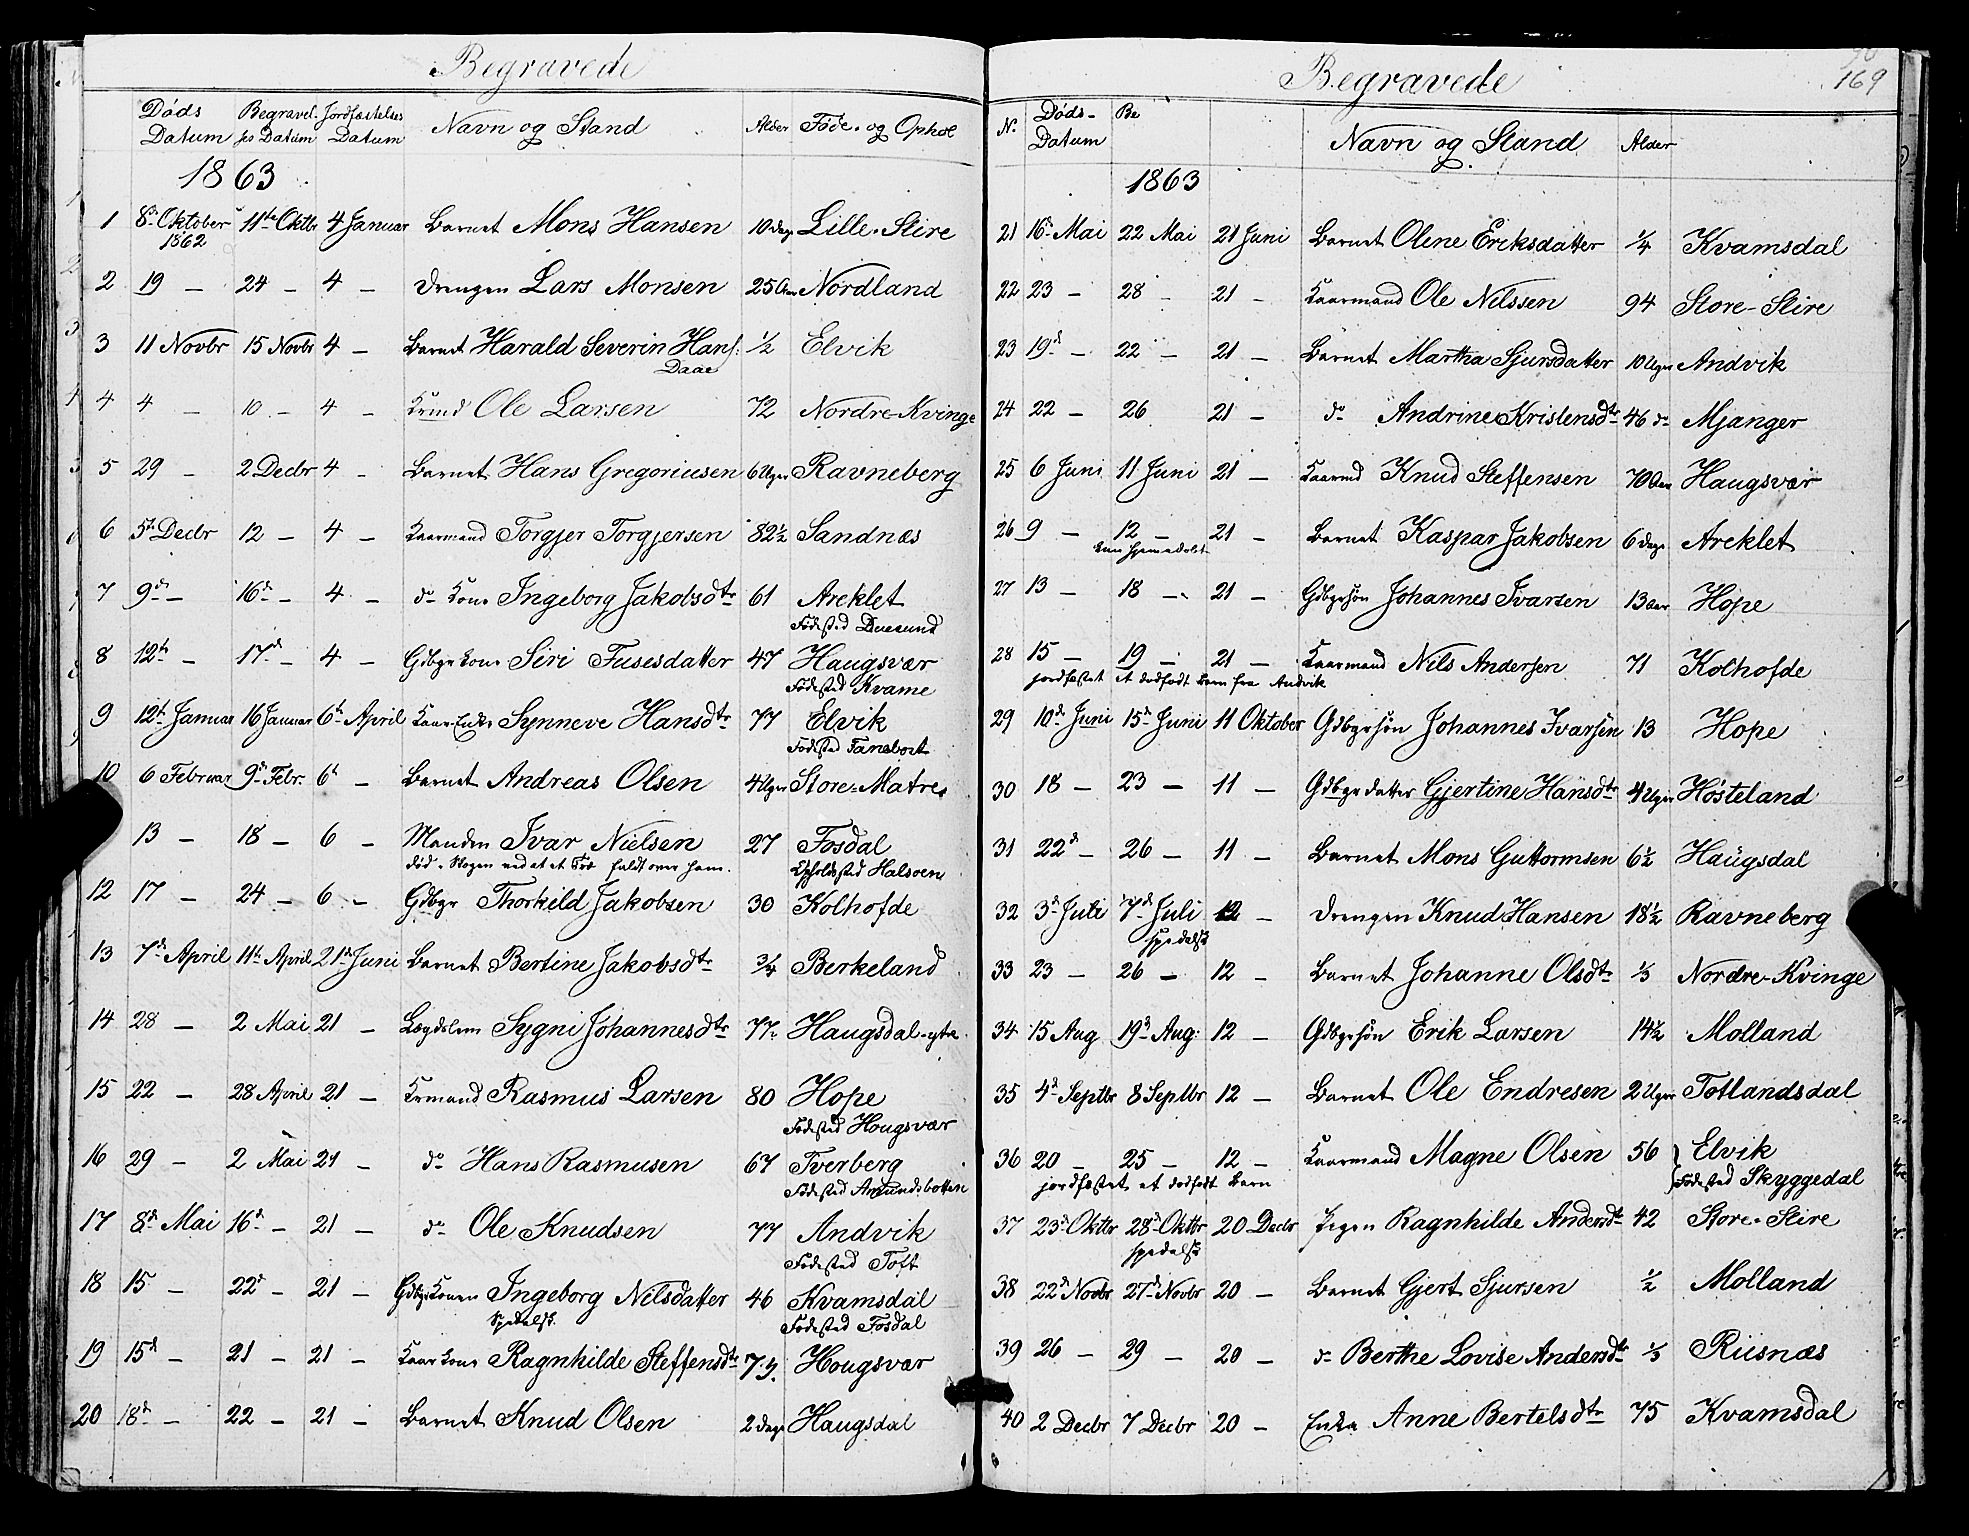 Begravede
Døds Datum | Begravel ses Datum | Jordfæstelses Datum | Navn og Stand | Alder | Føde- og Ophol
1863
1 8de Oktober 1862 11te Oktbr 4 Januar Barnet Mons Hansen 10 dage Lille-Stire
2 19 — 24 — 4 — Drengen Lars Monsen 25 Aar Nordland
3 11 Novbr 15 Novbr 4 — Barnet Harald Severin Hans: 1/2 Elvik
Daae
4 4 — 10 — 4 — Krmd Ole Larsen 72 Nordre-Kvinge
5 29 — 2 Decbr 4 — Barnet Hans Gregoriusen 6 Uger Ravneberg
6 5te Decbr 12 — 4 — Kaarmand Torgjer Torgjersen 82 1/2 Sandnæs
7 9de — 16de — 4 — do Kone Ingeborg Jakobsdtr 61 Areklet
Fødested Duesund
8 12te — 17de — 4 — Gdbgr kone Siri Fusesdatter 47 Haugsvær
Fødested Kvame
9 12te Januar 16 Januar 6te April Kaar-Enke Synneve Hansdtr 77 Elvik
Fødested Tanebost
10 6 Februar 9de Febr. 6te — Barnet Andreas Olsen 4 Uger Store-Matre
13 — 18 — 6 — Manden Ivar Nielsen 27 Fosdal
død i Skogen ved at et Træ faldt over ham. Opholdssted Halsøen
12 17 — 24 — 6 — Gdbgr Thorkild Jakobsen 30 Kolhofde
13 7de April 11te April 21de Juni Barnet Bertine Jakobsdtr 3/4 Berkeland
14 28 — 2 Mai 21 — Lægdslem Sygni Johannesdtr 77 Haugsdal-ytre
15 22 — 28 April 21 — Krmand Rasmus Larsen 80 Hope
Fødested Hougsvær
16 29 — 2 Mai 21 — do Hans Rasmusen 67 Tverberg
Fødested Amundsbotten
17 8de Mai 16de — 21 — do Ole Knudsen 77 Andvik
Fødested Toft
18 15 — 22de — 21 — Gdbgr Konen Ingeborg Nilsdatter 46 Kvamsdal
Spedalsk. Fødested Fosdal
19 15de — 21 — 21 — Kaar kone Ragnhilde Steffensdtr 73. Hougsvær
20 18de — 22 — 21 — Barnet Knud Olsen 2 dage Haugsdal
Begravede
169
N. | Døds- Datum | Be | Navn og Stand | Alder
1863
21 16de Mai 22 Mai 21 Juni Barnet Olene Eriksdatter 1/4 Kvamsdal
22 23 — 28 — 21 — Kaarmand Ole Nilssen 94 Store-Stire
23 19de — 22 — 21 — Barnet Martha Sjursdatter 10 Uger Andvik
24 22 — 26 21 — do Andrine Kristensdtr 46 do Mjanger
25 6 Juni 11 Juni 21 — Kaarmd Knud Steffensen 70 Aar Haugsvær
26 9 — 12 — 21 — Barnet Kaspar Jakobsen 6 dage Areklet
kun hjemedøbt
27 13 — 18 — 21 — Gdbgrsøn Johannes Ivarsen 13 Aar Hope
28 15 — 19 — 21 — Kaarmand Nils Andersen 71 Kolhofde
jordfæstet et dødfødt Barn fra Andvik
29 10de Juni 15de Juni 11 Oktober Gdbgrsøn Johannes Ivarsen 13 Hope
30 18 — 23 — 11 — Gdbgr datter Gjertine Hansdtr 4 Uger Hosteland
31 22de — 26 — 11 — Barnet Mons Guttormsen 6 1/2 Haugsdal
32 3de Juli 7de Juli 12 — Drengen Knud Hansen 18 1/2 Ravneberg
spedalsk
33 23 — 26 — 12 — Barnet Johanne Olsdtr 1/3 Nordre-Kvinge
34 15 Aug 19de Aug: 12 — Gdbgrsøn Erik Larsen 14 1/2 Molland
35 4de Septbr 8 Septbr 12 — Barnet Ole Endresen 2 Uger Totlandsdal
36 20 — 25 — 12 — Kaarmand Magne Olsen 56 Elvik
jordfæstet et dødfødt Barn Fødested Skyggedal
37 23de Oktbr 28de Oktbr 20 Decbr Pigen Ragnhilde Andersdtr 42 Store-Stire
spedalsk
38 22de Novbr 27de Novbr 20 — Barnet Gjert Sjursen 1/2 Molland
39 26 — 29 — 20 — do Berthe Lovise Andersdtr 1/3 Riisnæs
40 2 Decbr 7 Decbr 20 — Enke Anne Bertelsdtr 75 Kvamsdal